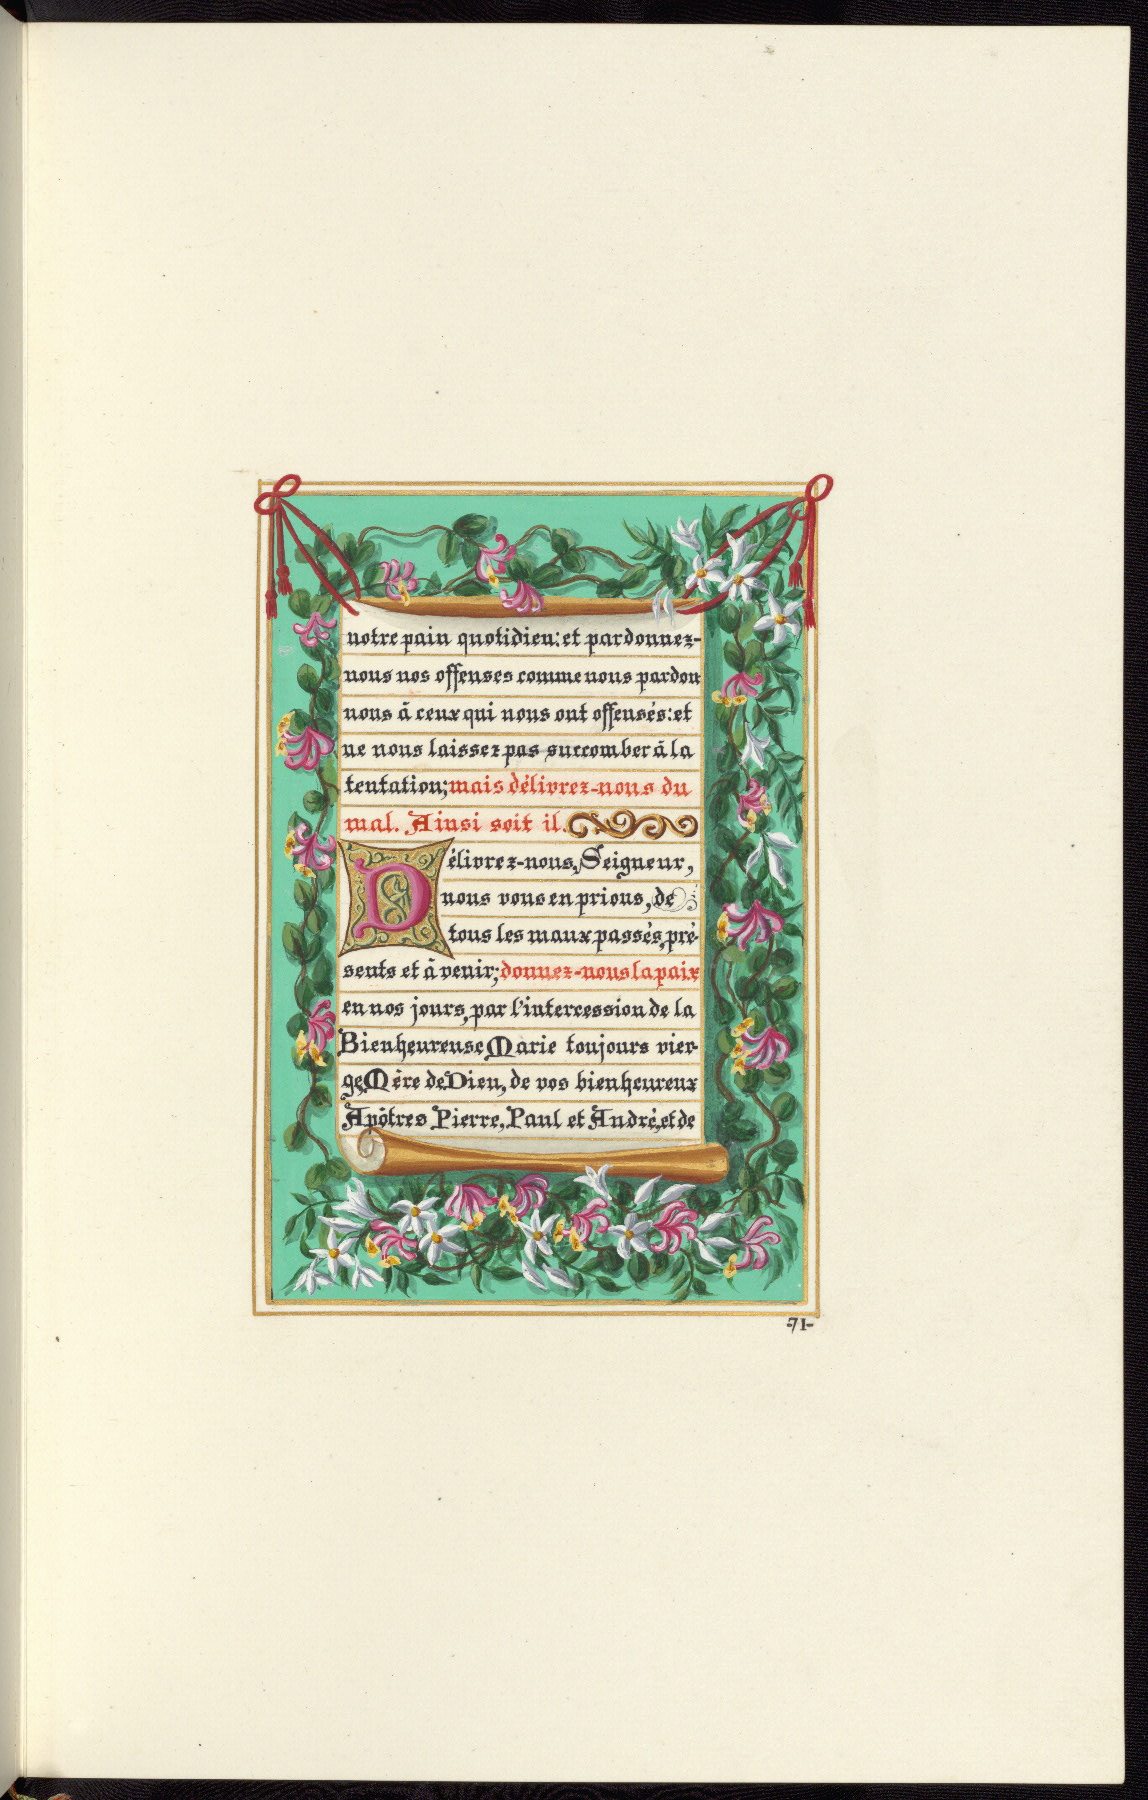 notre pain quotidien: et pardonnez-
nous nos offenses comme nous pardon
nous à ceux qui nous ont offensés: et
ne nous laissez pas succomber à la
tentation; mais délivrez-nous du
mal. Ainsi soit il.
Délivrez-nous, Seigneur,
nous vous en prions, de
tous les maux passés, pré-
sents et à venir; donnez-nous la paix
en nos jours, par l'intercession de la
Bienheureuse Marie toujours vier-
ge, Mère de Dieu, de vos bienheureux
Apôtres Pierre, Paul et André, et de
-71-